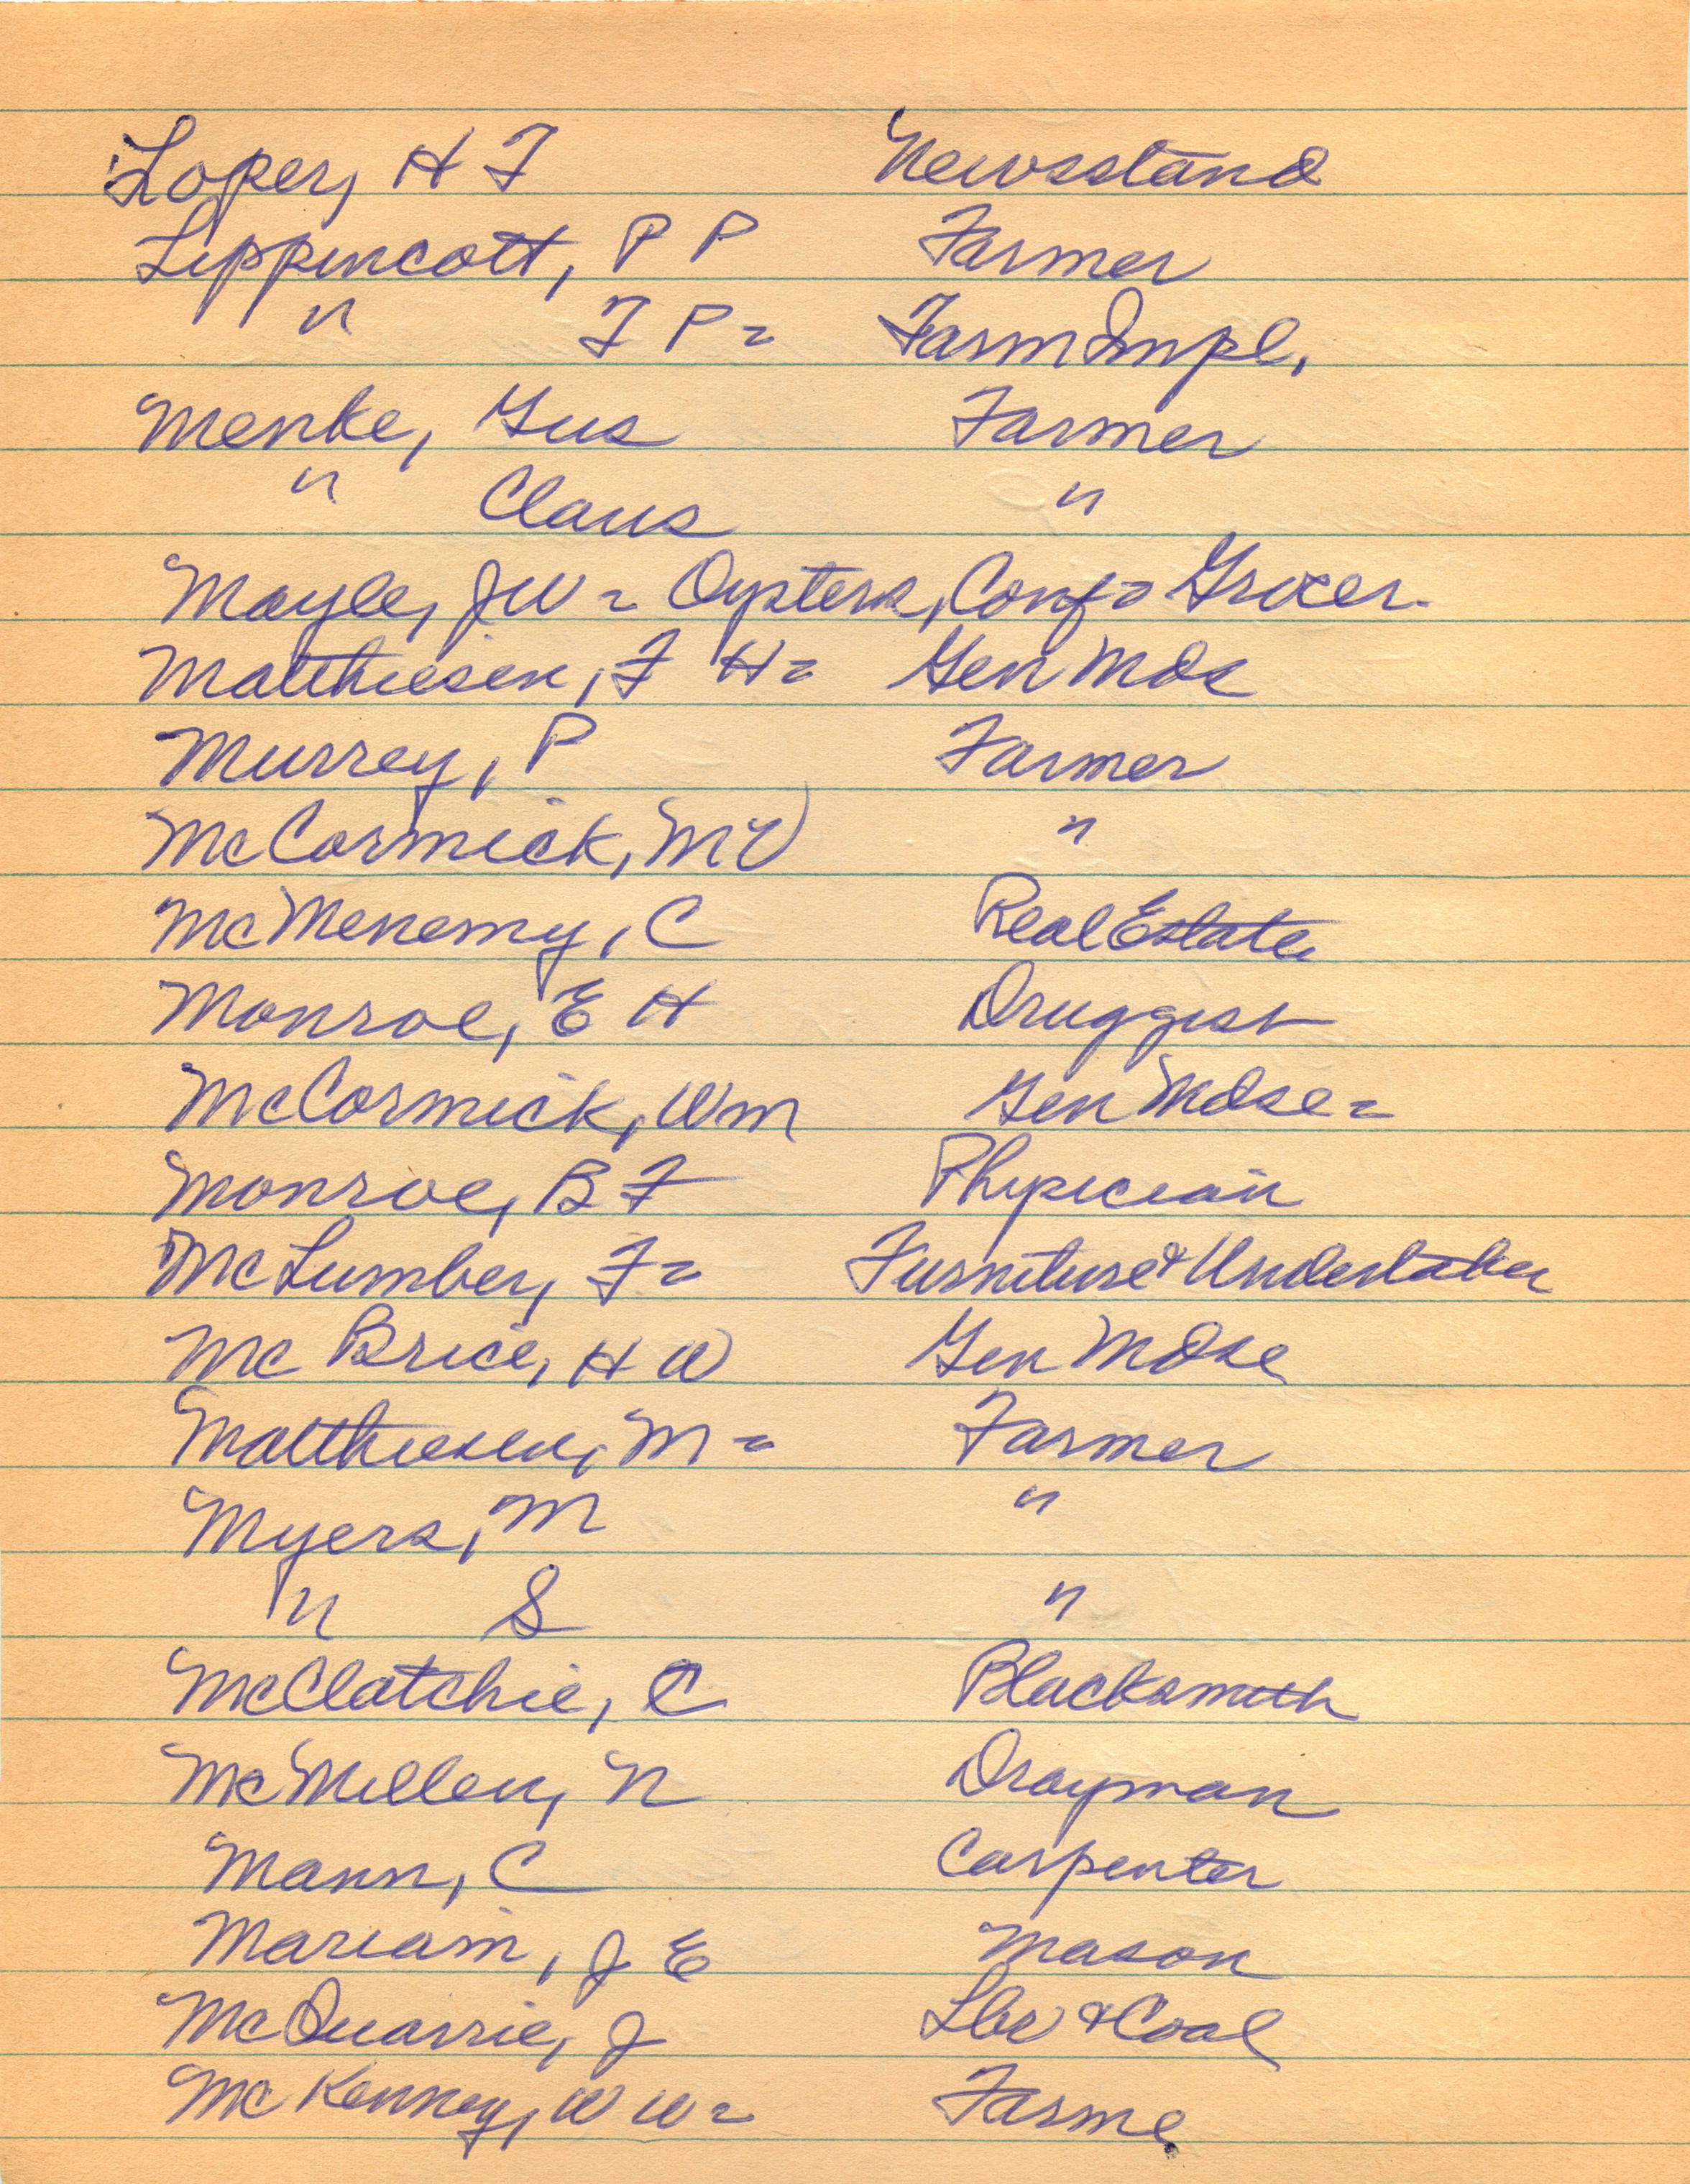 Loper, H F Newsstand
Lippincott, P P Farmer
" F P = Farm Impl.
Menke, Gus Farmer
" Claus "
Mayle, JW = Oysters, Conf = Grocer.
Matthiesen, F H = Gen Mds
Murrey, P Farmer
McCormick, MV "
McMenemy, C Real Estate
Monroe, E H Druggist
McCormick, Wm Gen Mdse =
Monroe, B F Physician
McLumber, F = Furniture & Undertaker
McBrice, H W Gen Mdse
Matthiesen, M = Farmer
Myers, M "
" S "
McClatchie, C Blacksmith
McMillen, N Drayman
Mann, C Carpenter
Mariam, J E Mason
McQuarrie, J Lbr & Coal
McKenney, W W = Farme